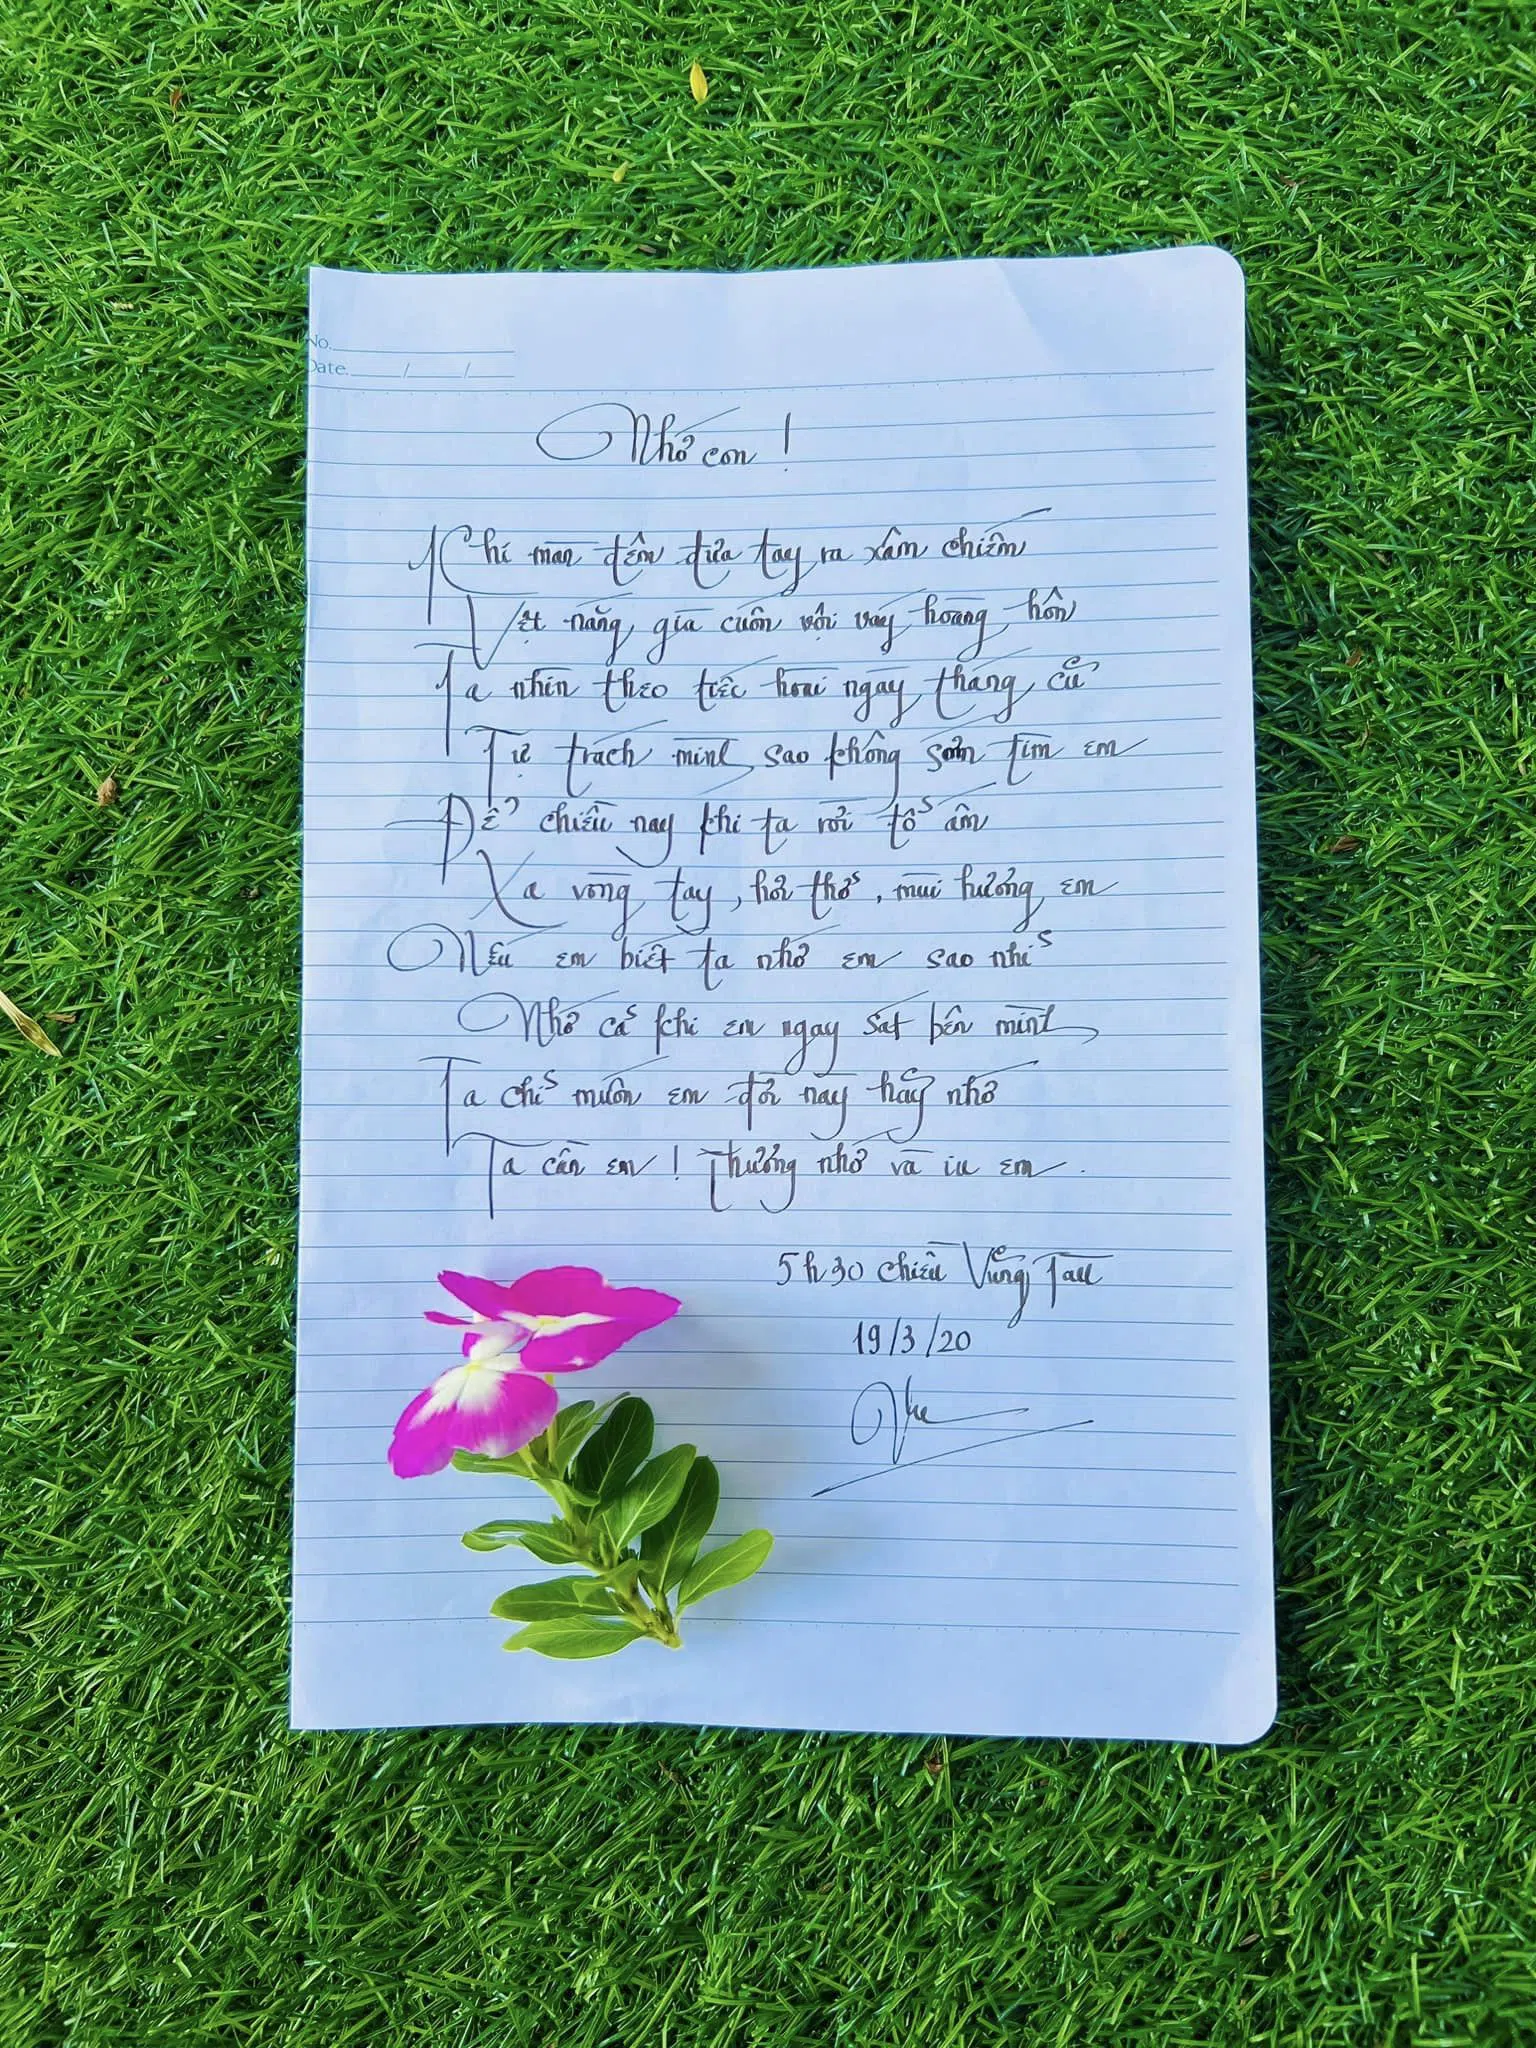 No.
Date. / /
Nhớ con !
Khi màn đêm đưa tay ra xâm chiếm
Vệt nắng già cuốn vội váy hoàng hôn
Ta nhìn theo tiếc hoài ngày tháng cũ
Tự trách mình sao không sớm tìm em
Để chiều nay khi ta rời tổ ấm
Xa vòng tay, hơi thở, mùi hương em
Nếu em biết ta nhớ em sao nhỉ
Nhớ cả khi em ngay sát bên mình
Ta chỉ muốn em đời này hãy nhớ
Ta cần em ! Thương nhớ và iu em.
5h30 chiều Vũng Tàu
19/3/20